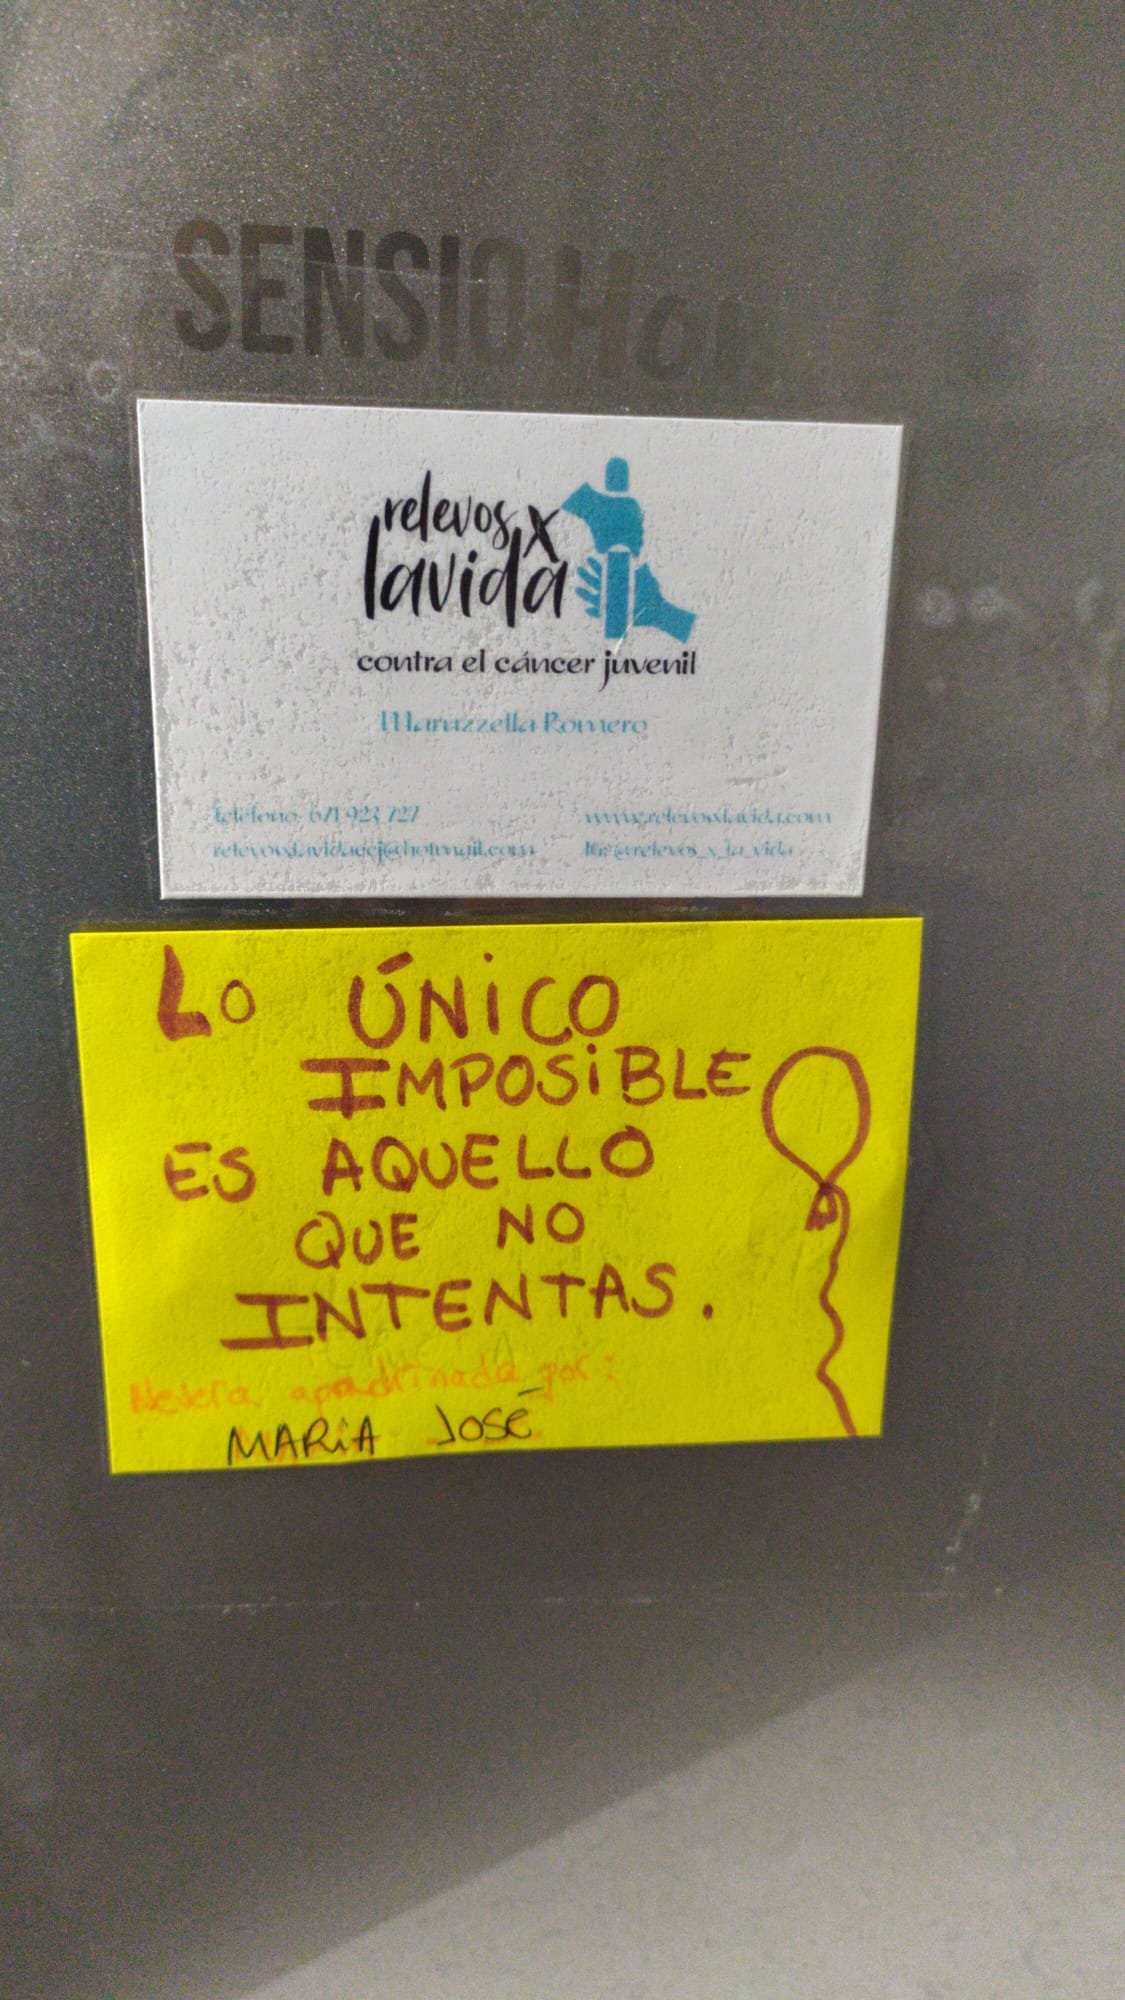 SENSIO Hom
relevos x
la vida
contra el cáncer juvenil
Maruzzella Romero
Teléfono: 671 923 727
www.relevosxlavida.com
IG: @relevos_x_la_vida
LO ÚNICO
IMPOSIBLE
ES AQUELLO
QUE NO
INTENTAS.
Nevera apadrinada por:
MARIA JOSÉ